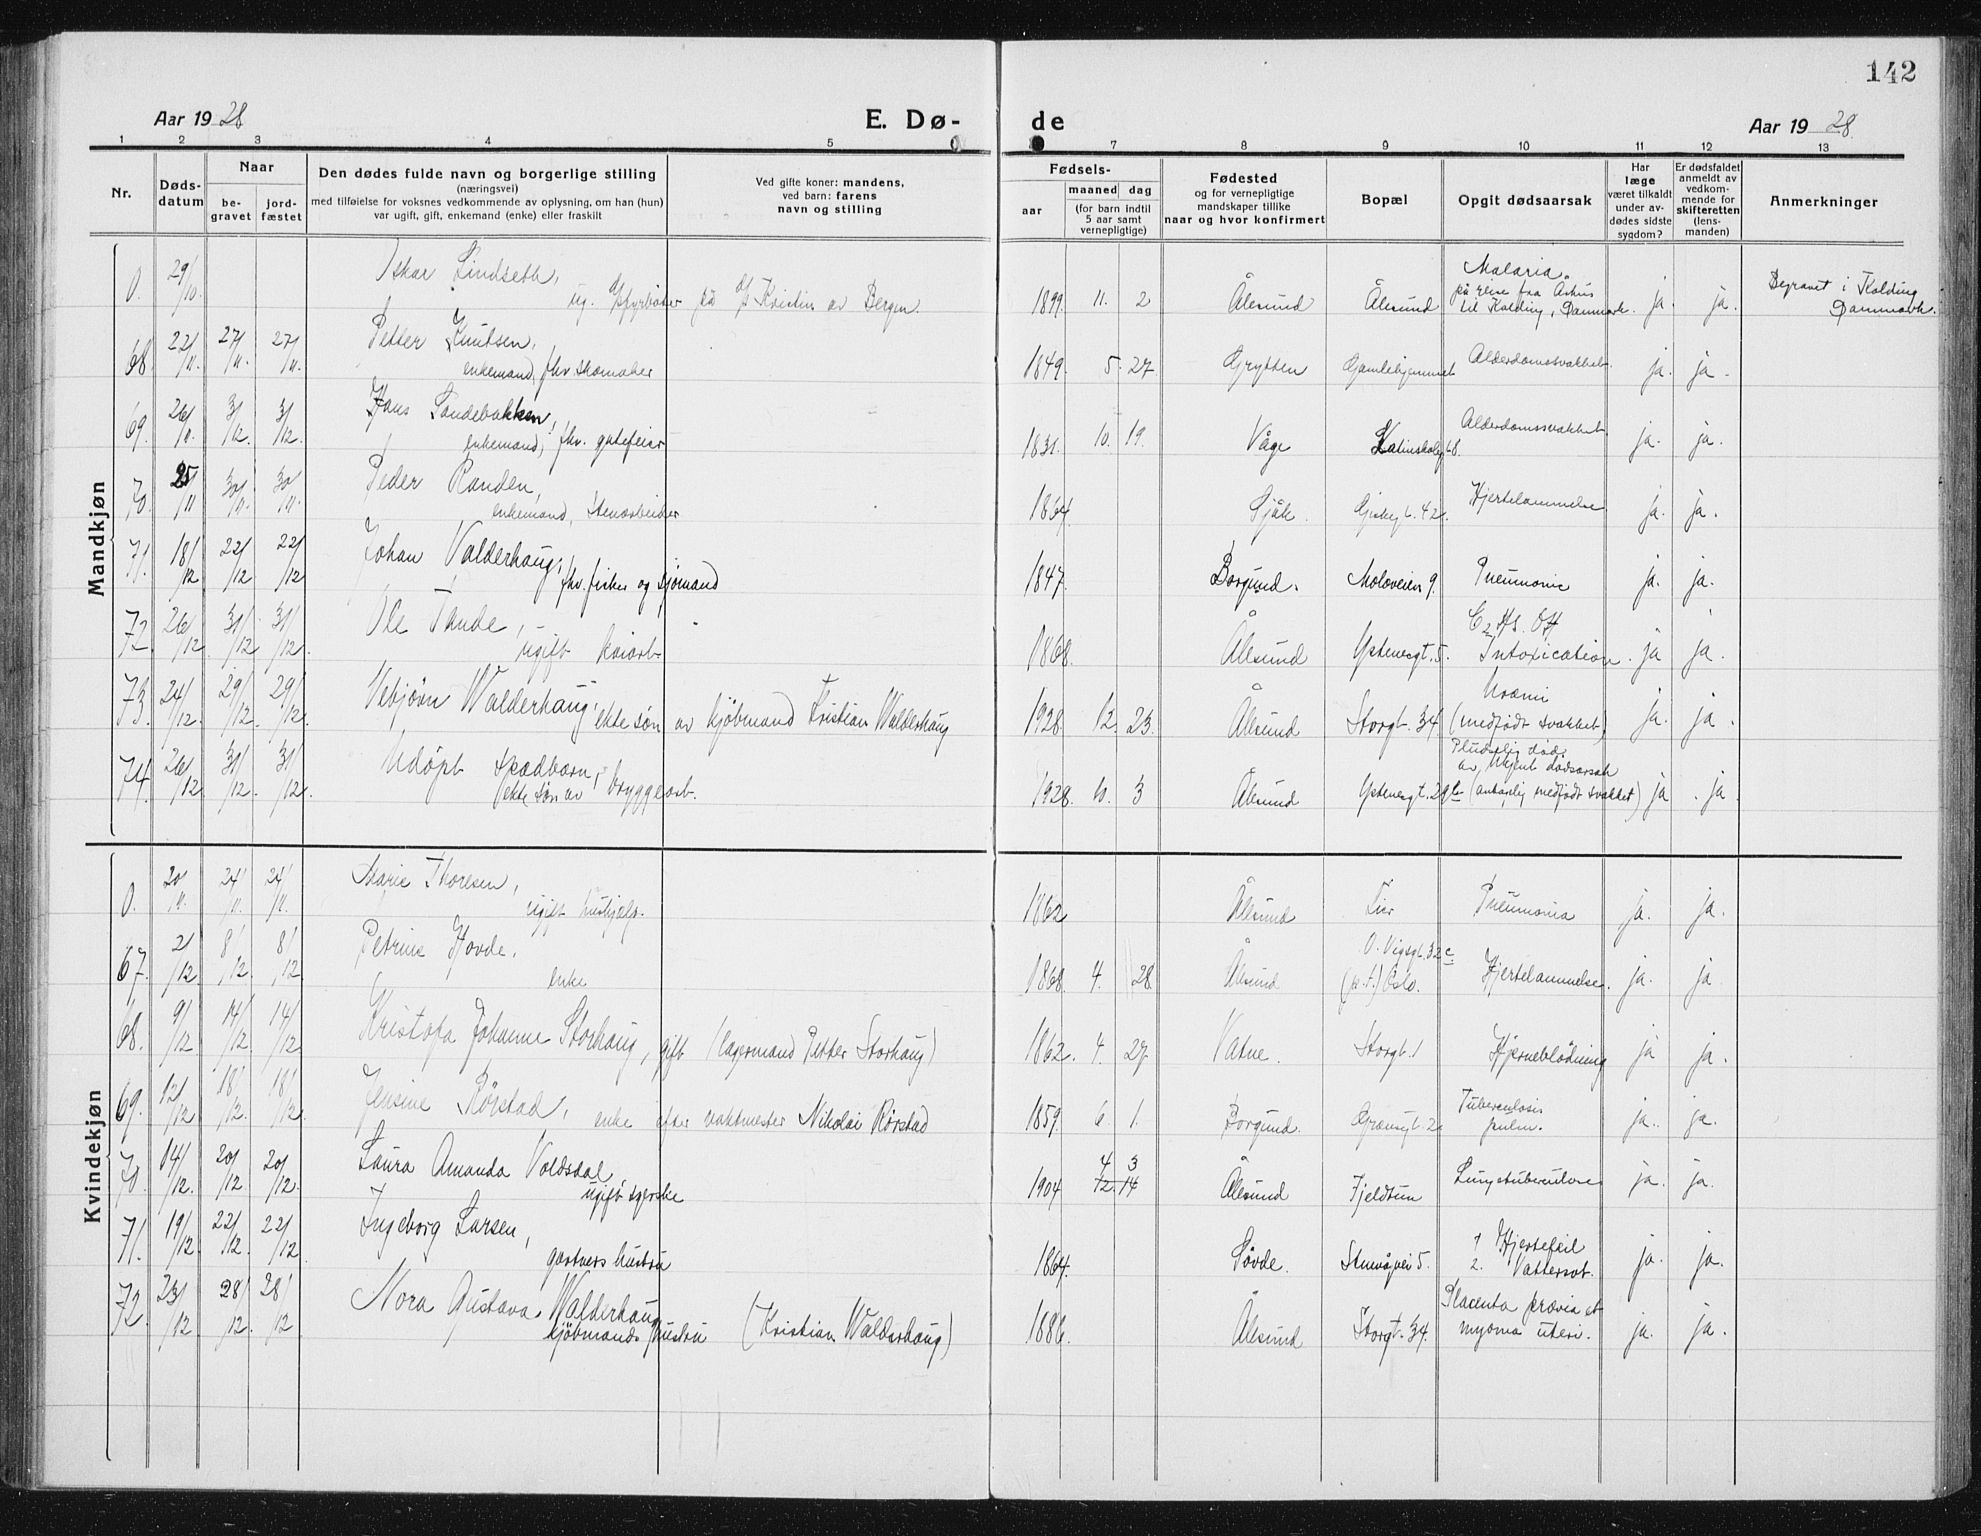 142
Aar 1928
E. Dø-
de
Aar 1928
1 2 3 4 5 7 8 9 10 11 12 13
Nr.
Døds-
datum
Naar
be-
gravet
jord-
fæstet
Den dødes fulde navn og borgerlige stilling
(næringsvei)
med tilføielse for voksnes vedkommende av oplysning, om han (hun)
var ugift, gift, enkemand (enke) eller fraskilt
Ved gifte koner: mandens,
ved barn: farens
navn og stilling
Fødsels-
aar
maaned dag
(for barn indtil
5 aar samt
vernepligtige)
Fødested
og for vernepligtige
mandskaper tillike
naar og hvor konfirmert
Bopæl
Opgit dødsaarsak
Har
læge
været tilkaldt
under av-
dødes sidste
sygdom?
Er dødsfaldet
anmeldt av
vedkom-
mende for
skifteretten
(lens-
manden)
Anmerkninger
Mandkjøn
0. 29/10. Oskar Lindseth,
ug. fyrbøter på Kristin av Bergen.
1899 11. 2 Ålesund Ålesund
Malaria.
på reise fra Århus
til Kolding, Danmark. ja. ja.
Begravet i Kolding
Danmark.
68. 22/11. 27/11. 27/11. Petter Knutsen,
enkemand, fhv. skomaker
1849. 5. 27 Grytten Gamlehjemmet Alderdomssvakhet. ja. ja.
69. 26/11. 3/12. 3/12. Hans Sandebakken,
enkemand, fhv. gatefeier
1831. 10. 19. Våge Latinskolegt. 8. Alderdomssvakhet. ja. ja.
70. 25/11 30/11. 30/11. Peder Randen,
enkemand, stenarbeider
1864. Sjåk. Giskegt. 42. Hjertelammelse ja. ja.
71. 18/12 22/12 22/12 Johan Valderhaug,
fhv. fisker og sjømand
1847. Borgund. Moloveien 9. Pneumonie ja. ja.
72. 26/12 31/12 31/12. Ole Tande,
ugift kaiarb.
1868. Ålesund Ystenesgt. 5. C2 H5. OH
Intoxication. ja ja.
73. 24/12. 29/12. 29/12. Vebjørn Walderhaug,
ekte søn av kjøbmand Kristian Walderhaug
1928. 12. 23. Ålesund Storgt. 34 (medfødt svakhet) ja. ja.
74. 26/12. 31/12. 31/12. Udøpt spædbarn,
ekte søn av bryggearb.
1928. 10. 3 Ålesund
Pludselig død
av ukjent dødsårsak
(antagelig medfødt svakhet) ja. ja.
Kvindekjøn
0. 20/11. 24/11. 24/11. Marie Thoresen,
ugift hushjelp.
1862 Ålesund Lier Pneumonia ja. ja.
67. 2/12 8/12. 8/12 Petrine Hovde,
enke
1868. 4. 28 Ålesund (p.t.) Oslo. Hjertelammelse. ja. ja
68. 9/12 14/12 14/12 Kristofa Johanne Storhaug, gift (lagermand Petter Storhaug)
1862. 4. 27. Vatne. Storgt. 1 Hjerneblødning ja ja.
69. 12/12 18/12. 18/12 Jensine Rørstad, enke efter vaktmester Nikolai Rørstad
1859. 6. 1. Borgund. Grensegt. 2
Tuberculosis
pulm. ja. ja.
70. 14/12. 20/12 20/12. Laura Amanda Voldsdal
ugift syerske
1904 12. 14
4 3
Ålesund Fjeldtun Lungetuberkulose ja. ja.
71. 19/12. 22/12. 22/12 Ingeborg Larsen,
gartners hustru
1864. Søvde. Stenvågvei 5.
1 Hjertefeil
2. Vattersot. ja. ja.
72. 23/12 28/12. 28/12 Nora Gustava Walderhaug
kjøbmands hustru (Kristian Walderhaug)
1886. Ålesund Storgt. 34.
Placenta prævia et
myoma uteri. ja. ja.